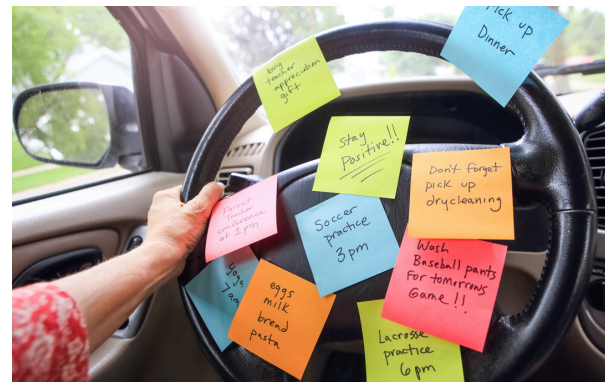 Pick up
Dinner
buy
teacher
appreciation
gift
Stay
Positive!!
Don't forget
pick up
drycleaning
Parent
Teacher
conference
at 1pm
Soccer
practice
3pm
Wash
Baseball pants
For tomorrows
Game!!
Yoga
7am
eggs
milk
bread
pasta
Lacrosse
practice
6pm